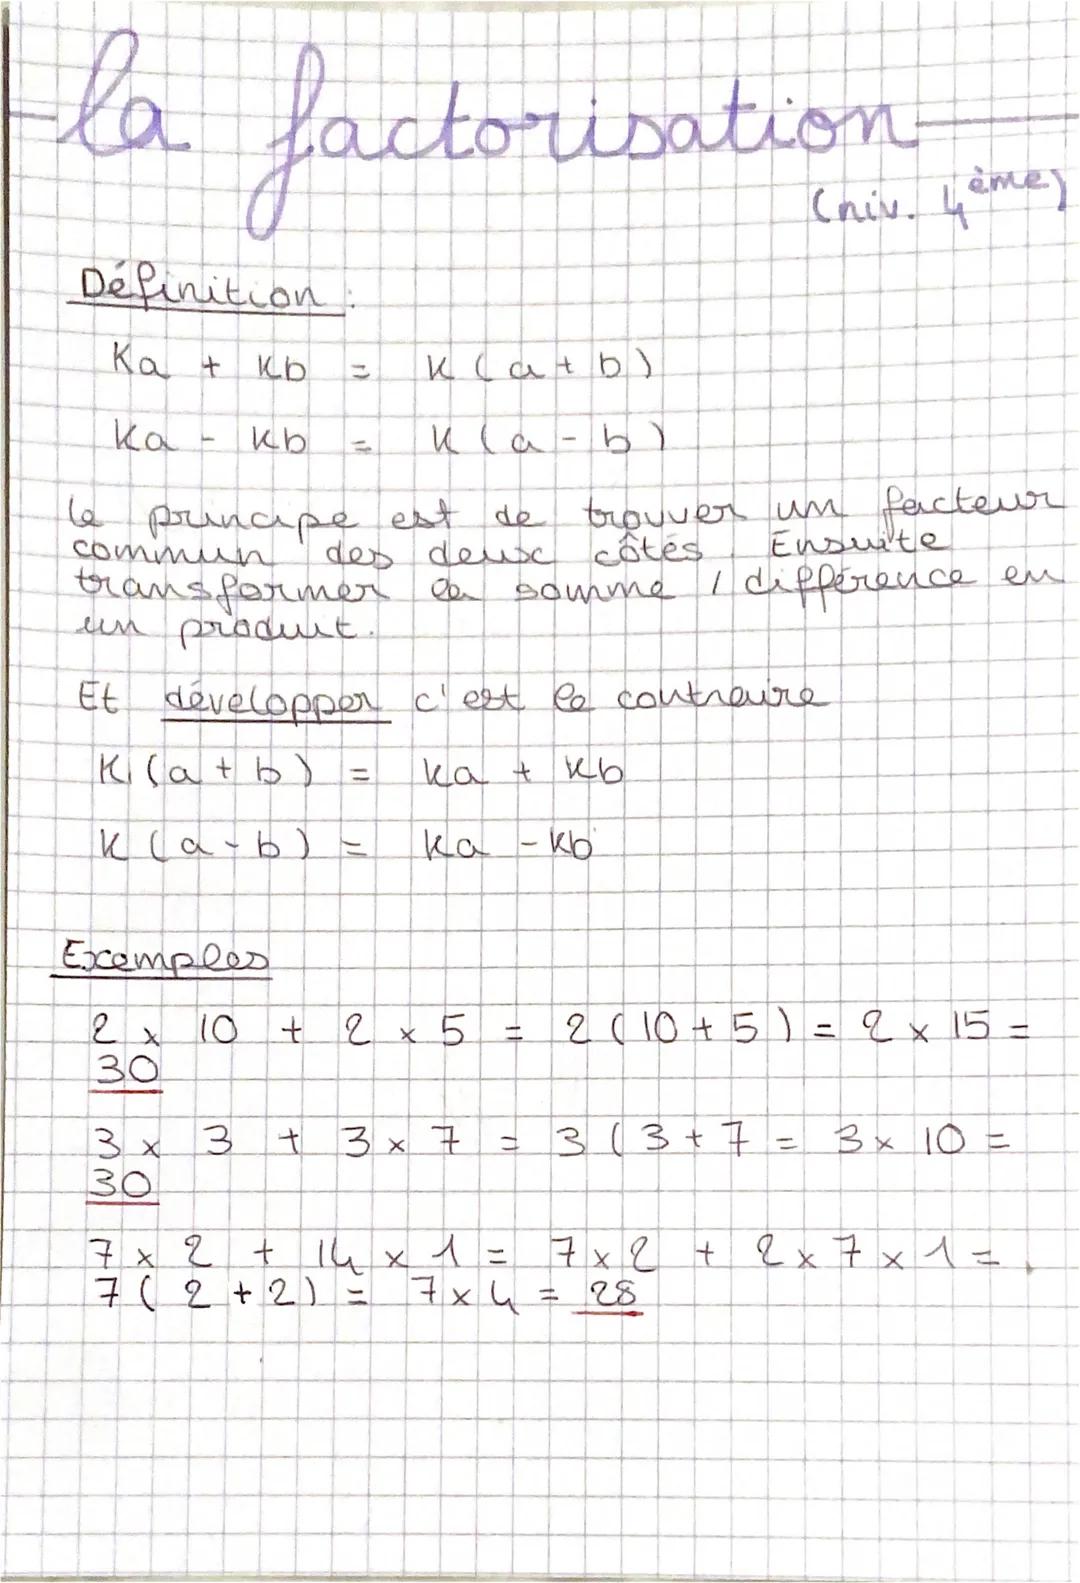 la factorisation
(niv. 4ème)
Définition :
Ka + Kb = K(a+b)
Ka - Kb = K(a-b)
le principe est de trouver un facteur
commun des deux côtés. Ensuite
transformer la somme / différence en
un produit.
Et développer c'est le contraire
K(a+b) = Ka + Kb
K(a-b) = Ka - Kb
Exemples
2 x 10 + 2 x 5 = 2(10+5) = 2 x 15 =
30
3 x 3 + 3 x 7 = 3(3+7 = 3 x 10 =
30
7 x 2 + 14 x 1 = 7 x 2 + 2 x 7 x 1 =
7(2+2) = 7 x 4 = 28